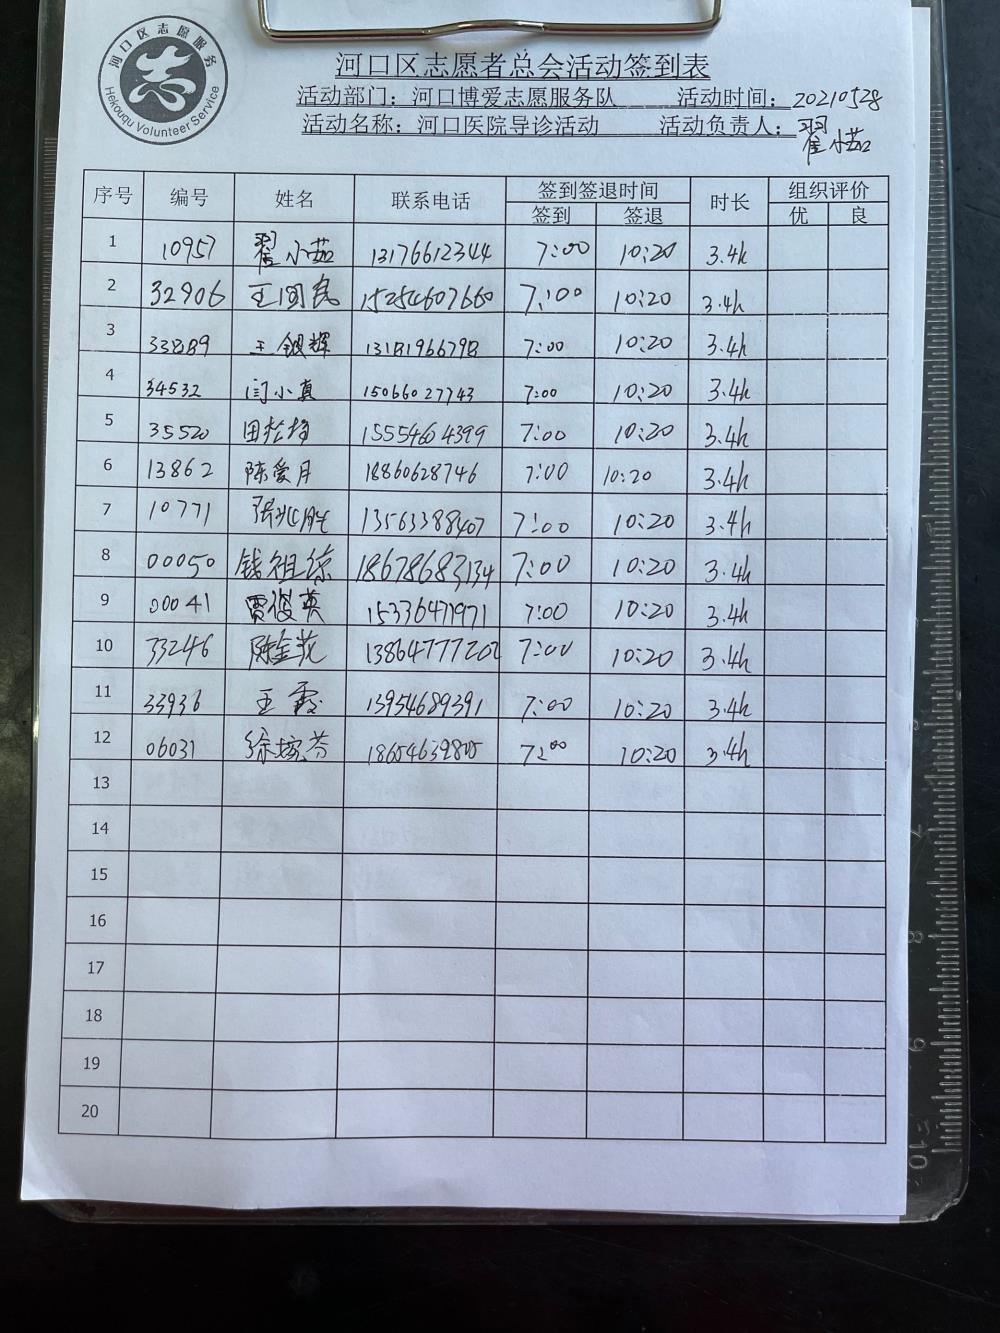 河口区志愿服务
Hekouqu Volunteer Service
河口区志愿者总会活动签到表
活动部门：河口博爱志愿服务队 活动时间：20210528
活动名称：河口医院导诊活动 活动负责人：翟小茹
序号 编号 姓名 联系电话 签到签退时间 时长 组织评价
签到 签退 优 良
1 10957 翟小茹 13176612344 7:00 10:20 3.4h
2 32906 王国良 15254607660 7:00 10:20 3.4h
3 33889 王银辉 13181966798 7:00 10:20 3.4h
4 34532 闫小真 15066027743 7:00 10:20 3.4h
5 35520 田 15554604399 7:00 10:20 3.4h
6 13862 陈爱月 18860628746 7:00 10:20 3.4h
7 10771 张兆胜 13563388407 7:00 10:20 3.4h
8 00050 钱祖 18678683134 7:00 10:20 3.4h
9 00041 贾俊英 15336471971 7:00 10:20 3.4h
10 33246 陈金花 13864777202 7:00 10:20 3.4h
11 33936 王霞 13954689391 7:00 10:20 3.4h
12 06031 徐婉芬 7:00 10:20 3.4h
13
14
15
16
17
18
19
20